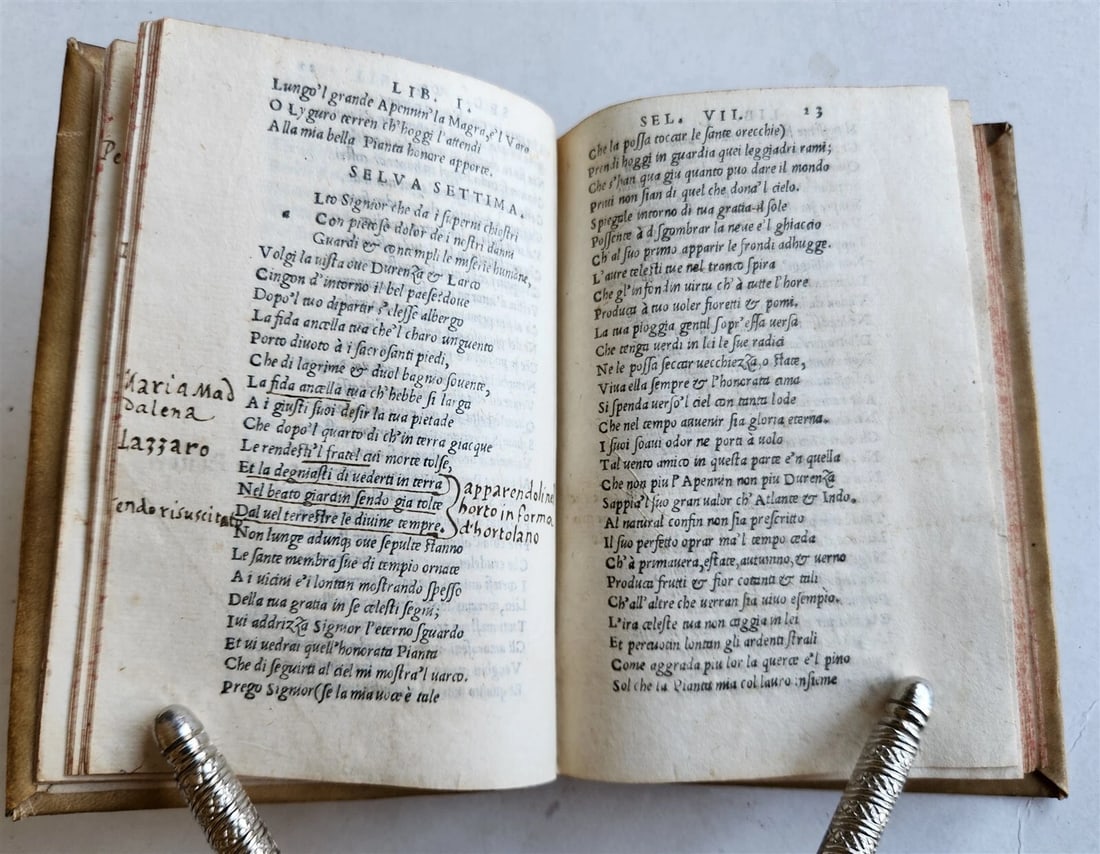 LIB. I.
Lungo'l grande Apennin' la Magra, e'l Varo
O Lyguro terren ch'hoggi l'attendi
Alla mia bella Pianta honore apporte.
SELVA SETTIMA.
Lto Signior che da i superni chiostri
Con pietoso dolor de i nostri danni
Guardi & contempli le miserie humane,
Volgi la uista oue Durenza & Larco
Cingon d'intorno il bel paese: doue
Dopo'l tuo dipartir s'elesse albergo
La fida ancella tua che'l charo unguento
Porto diuoto à i sacrosanti piedi,
Che di lagrime & duol bagnio souente,
La fida ancella tua ch'hebbe si larga
A i giusti suoi desir la tua pietade
Che dopo'l quarto di ch'in terra giacque
Le rendesti'l fratel cui morte tolse,
Et la degniasti di uederti in terra
Nel beato giardin sendo gia tolte
Dal uel terrestre le diuine tempre.
Non lunge adunq; oue sepulte stanno
Le sante membra sue di tempio ornate
A i uicini e'i lontan mostrando spesso
Della tua gratia in se celesti segni;
Iui addrizza Signior l'eterno sguardo
Et ui uedrai quell'honorata Pianta
Che di seguirti al ciel mi mostra'l uarco.
Prego Signior (se la mia uoce è tale
Pe
Maria Mad
dalena
Lazzaro
endo risuscitato
apparendoli nel
horto in forma
d'hortolano
SEL. VII. 23
Che la possa toccar le sante orecchie)
Prendi hoggi in guardia quei leggiadri rami;
Che s'han qua giu quanto puo dare il mondo
Priui non sian di quel che dona'l cielo.
Spiegale intorno di tua gratia il sole
Possente à disgombrar la neue e'l ghiaccio
Ch'al suo primo apparir le frondi adhugge.
L'aure celesti tue nel tronco spira
Che gl'infondin uirtu ch'à tutte l'hore
Produca à tuo uoler fioretti & pomi.
La tua pioggia gentil sopr'essa uersa
Che tenga uerdi in lei le sue radici
Ne le possa seccar uecchiezza, o state,
Viua ella sempre & l'honorata cima
Si spenda uerso'l ciel con tanta lode
Che nel tempo auuenir sia gloria eterna.
I suoi soaui odor ne porti à uolo
Tal uento amico in questa parte e'n quella
Che non piu l'Apennin non piu Durenza
Sappia'l suo gran ualor ch'Atlante & Indo.
Al natural confin non sia prescritto
Il suo perfetto oprar ma'l tempo ceda
Ch'à primauera, estate, autunno, & uerno
Produca frutti & fior cotanti & tali
Ch'all'altre che uerran sia uiuo esempio.
L'ira celeste tua non caggia in lei
Et percuotin lontan gli ardenti strali
Come aggrada piu lor la querce e'l pino
Sol che la Pianta mia col lauro insieme